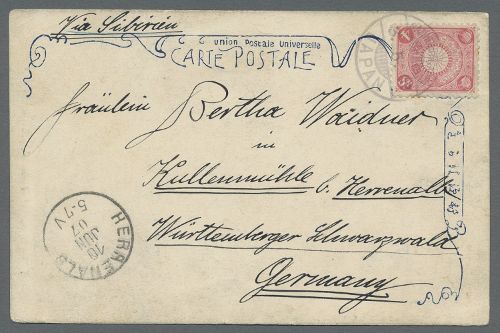 Via Sibirien
Union Postale Universelle
CARTE POSTALE
Fräulein Bertha Waidner
in
Kullenmühle b. Herrenalb
Württemberger Schwarzwald
Germany
HERRENALB
10
JUN
07
5-7V
JAPAN